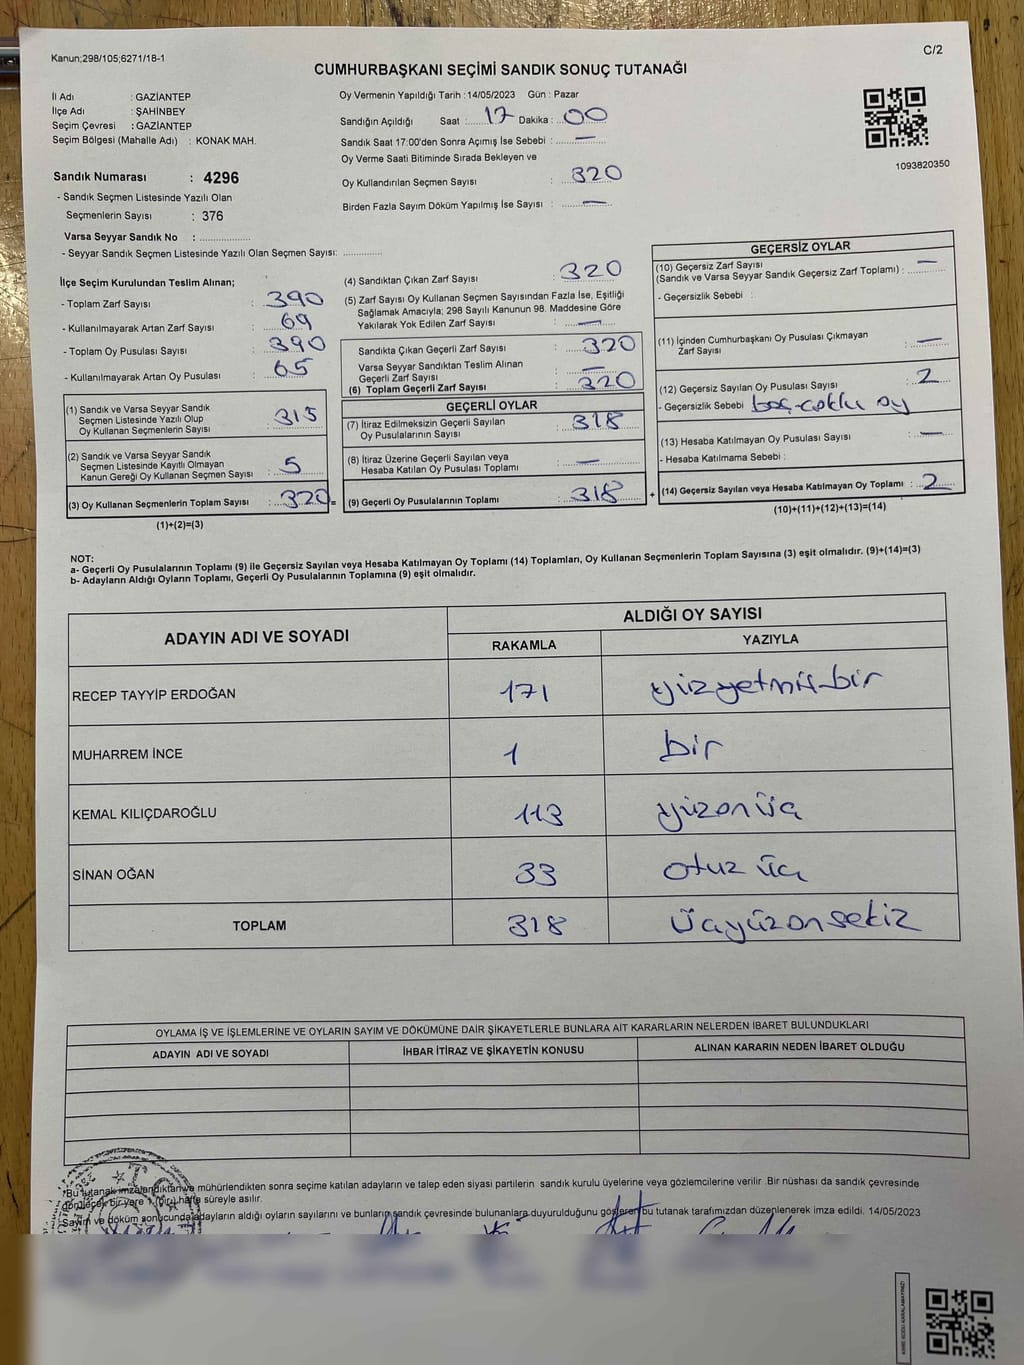 Kanun;298/105;6271/18-1
C/2
CUMHURBAŞKANI SEÇİMİ SANDIK SONUÇ TUTANAĞI
İl Adı : GAZİANTEP
İlçe Adı : ŞAHİNBEY
Seçim Çevresi : GAZİANTEP
Seçim Bölgesi (Mahalle Adı) : KONAK MAH.
Sandık Numarası : 4296
- Sandık Seçmen Listesinde Yazılı Olan
Seçmenlerin Sayısı : 376
Varsa Seyyar Sandık No : ................
- Seyyar Sandık Seçmen Listesinde Yazılı Olan Seçmen Sayısı: ............
Oy Vermenin Yapıldığı Tarih : 14/05/2023 Gün : Pazar
Sandığın Açıldığı Saat : 17 Dakika : 00
Sandık Saat 17:00'den Sonra Açımış İse Sebebi : —
Oy Verme Saati Bitiminde Sırada Bekleyen ve
Oy Kullandırılan Seçmen Sayısı : 320
Birden Fazla Sayım Döküm Yapılmış İse Sayısı : —
1093820350
İlçe Seçim Kurulundan Teslim Alınan;
- Toplam Zarf Sayısı : 390
- Kullanılmayarak Artan Zarf Sayısı : 69
- Toplam Oy Pusulası Sayısı : 390
- Kullanılmayarak Artan Oy Pusulası : 65
(1) Sandık ve Varsa Seyyar Sandık
Seçmen Listesinde Yazılı Olup
Oy Kullanan Seçmenlerin Sayısı : 315
(2) Sandık ve Varsa Seyyar Sandık
Seçmen Listesinde Kayıtlı Olmayan
Kanun Gereği Oy Kullanan Seçmen Sayısı : 5
(3) Oy Kullanan Seçmenlerin Toplam Sayısı : 320 =
(1)+(2)=(3)
(4) Sandıktan Çıkan Zarf Sayısı : 320
(5) Zarf Sayısı Oy Kullanan Seçmen Sayısından Fazla İse, Eşitliği
Sağlamak Amacıyla; 298 Sayılı Kanunun 98. Maddesine Göre
Yakılarak Yok Edilen Zarf Sayısı : —
Sandıkta Çıkan Geçerli Zarf Sayısı : 320
Varsa Seyyar Sandıktan Teslim Alınan
Geçerli Zarf Sayısı : —
(6) Toplam Geçerli Zarf Sayısı : 320
GEÇERLİ OYLAR
(7) İtiraz Edilmeksizin Geçerli Sayılan
Oy Pusulalarının Sayısı : 318
(8) İtiraz Üzerine Geçerli Sayılan veya
Hesaba Katılan Oy Pusulası Toplamı : —
(9) Geçerli Oy Pusulalarının Toplamı : 318 +
GEÇERSİZ OYLAR
(10) Geçersiz Zarf Sayısı
(Sandık ve Varsa Seyyar Sandık Geçersiz Zarf Toplamı) : —
- Geçersizlik Sebebi :
(11) İçinden Cumhurbaşkanı Oy Pusulası Çıkmayan
Zarf Sayısı : —
(12) Geçersiz Sayılan Oy Pusulası Sayısı : 2
- Geçersizlik Sebebi boş-çoklu oy
(13) Hesaba Katılmayan Oy Pusulası Sayısı : —
- Hesaba Katılmama Sebebi :
(14) Geçersiz Sayılan veya Hesaba Katılmayan Oy Toplamı : 2
(10)+(11)+(12)+(13)=(14)
NOT:
a- Geçerli Oy Pusulalarının Toplamı (9) ile Geçersiz Sayılan veya Hesaba Katılmayan Oy Toplamı (14) Toplamları, Oy Kullanan Seçmenlerin Toplam Sayısına (3) eşit olmalıdır. (9)+(14)=(3)
b- Adayların Aldığı Oyların Toplamı, Geçerli Oy Pusulalarının Toplamına (9) eşit olmalıdır.
ADAYIN ADI VE SOYADI ALDIĞI OY SAYISI
RAKAMLA YAZIYLA
RECEP TAYYİP ERDOĞAN 171 yüzyetmiş-bir
MUHARREM İNCE 1 bir
KEMAL KILIÇDAROĞLU 113 yüzonüç
SİNAN OĞAN 33 otuz üç
TOPLAM 318 üçyüzonsekiz
OYLAMA İŞ VE İŞLEMLERİNE VE OYLARIN SAYIM VE DÖKÜMÜNE DAİR ŞİKAYETLERLE BUNLARA AİT KARARLARIN NELERDEN İBARET BULUNDUKLARI
ADAYIN ADI VE SOYADI İHBAR İTİRAZ VE ŞİKAYETİN KONUSU ALINAN KARARIN NEDEN İBARET OLDUĞU
*Bu tutanak imzalandıktan ve mühürlendikten sonra seçime katılan adayların ve talep eden siyasi partilerin sandık kurulu üyelerine veya gözlemcilerine verilir .Bir nüshası da sandık çevresinde
görülecek bir yere 1 (bir) hafta süreyle asılır.
Sayım ve döküm sonucunda adayların aldığı oyların sayılarını ve bunların sandık çevresinde bulunanlara duyurulduğunu gösteren bu tutanak tarafımızdan düzenlenerek imza edildi. 14/05/2023